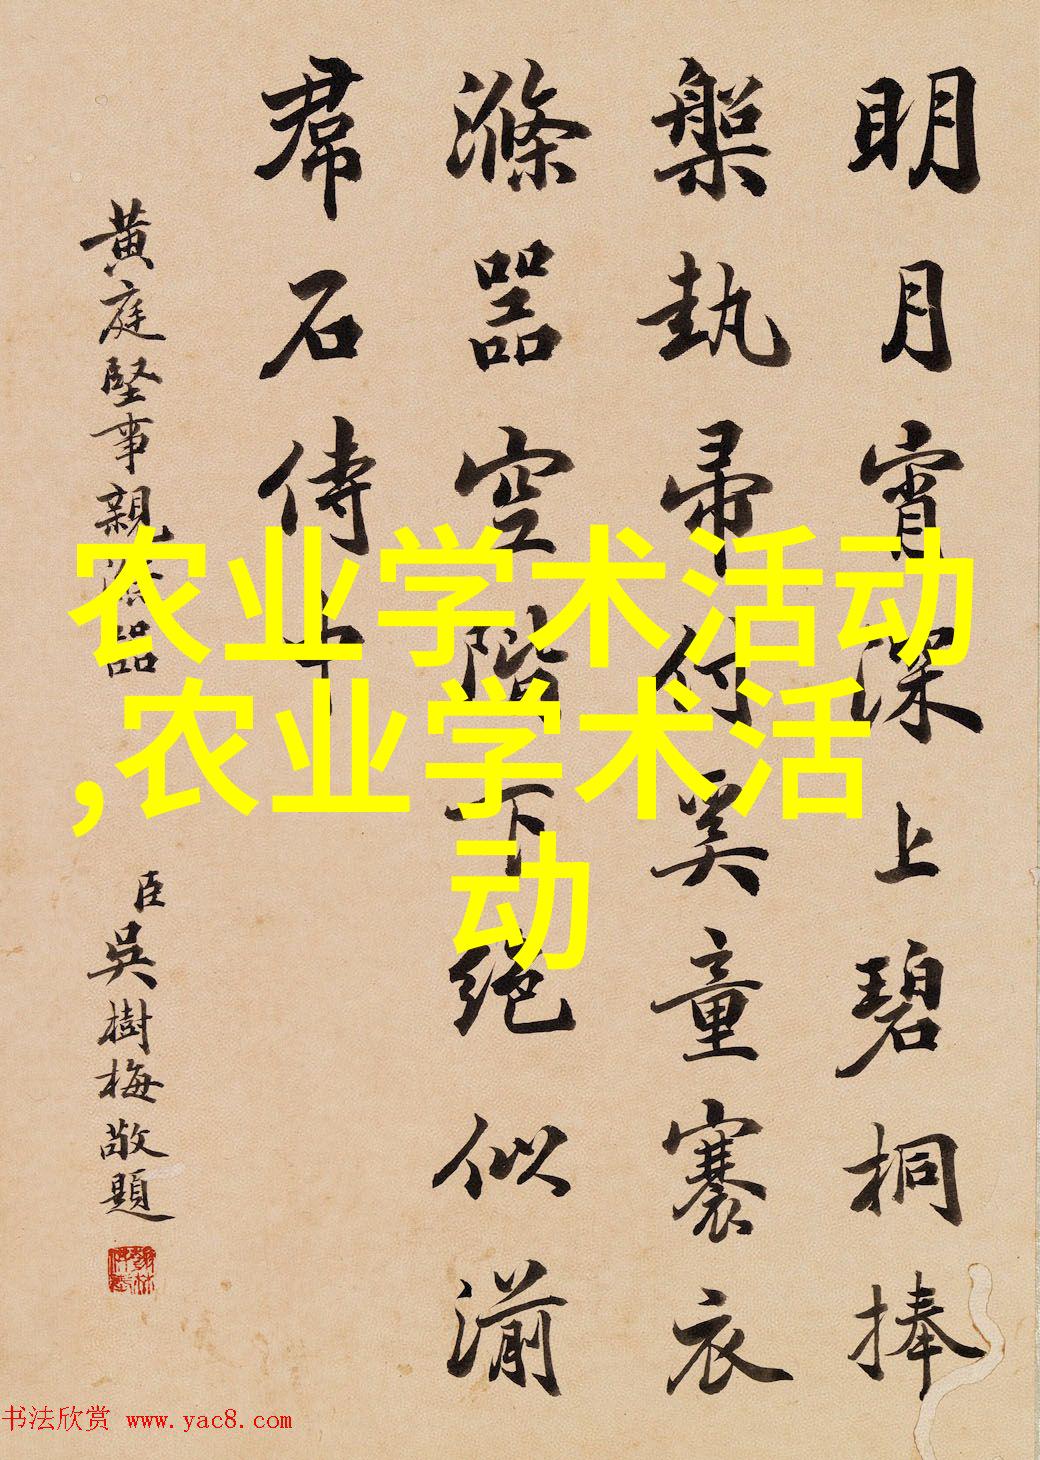 明月宵深上碧桐捧
槃執帚付奚童褰衣
滌器空階下絶似湔
帬石侍中
黄庭堅事親滌器
臣吳樹梅敬題
農业学术活动
,农业学术活
动
书法欣赏 www.yac8.com